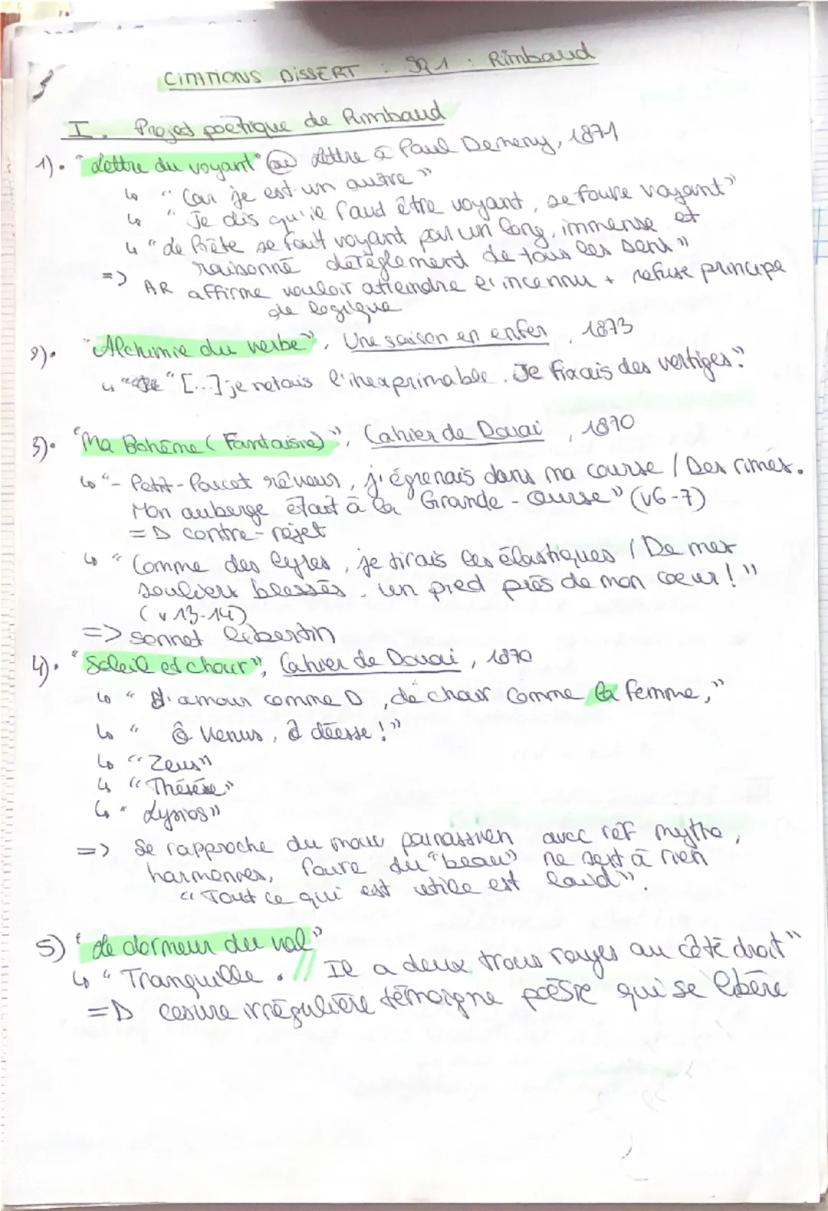 CITATIONS DISSERT : SQ1 : Rimbaud
I. Projet poétique de Rimbaud
1). "Lettre du voyant" ou lettre à Paul Demeny, 1871
↳ "Car je est un autre"
↳ "Je dis qu'il faut être voyant, se faire voyant"
↳ "Le Poète se fait voyant par un long, immense et
raisonné dérèglement de tous les sens"
=> AR affirme vouloir atteindre l'inconnu + refuse principe
de logique
2). "Alchimie du verbe", Une saison en enfer, 1873
↳ "[...] je notais l'inexprimable. Je fixais des vertiges."
3). "Ma Bohême (Fantaisie)", Cahier de Douai, 1870
↳ "- Petit-Poucet rêveur, j'égrenais dans ma course / Des rimes.
Mon auberge était à la Grande-Ourse" (v6-7)
=D contre-rejet
↳ "Comme des lyres, je tirais les élastiques / De mes
souliers blessés, un pied près de mon coeur!"
(v13-14)
=> sonnet libertin
4). "Soleil et chair", Cahier de Douai, 1870
↳ "D'amour comme D, de chair comme la femme,"
↳ "Ô Vénus, ô déesse!"
↳ "Zeus"
↳ "Thérèse"
↳ "Lysios"
=> Se rapproche du mouv parnassien avec réf mytho,
harmonies, faire du "beau" ne sert à rien
"Tout ce qui est utile est laid".
5) "Le dormeur du val"
↳ "Tranquille. // Il a deux trous rouges au côté droit"
=D césure irrégulière témoigne poésie qui se libère